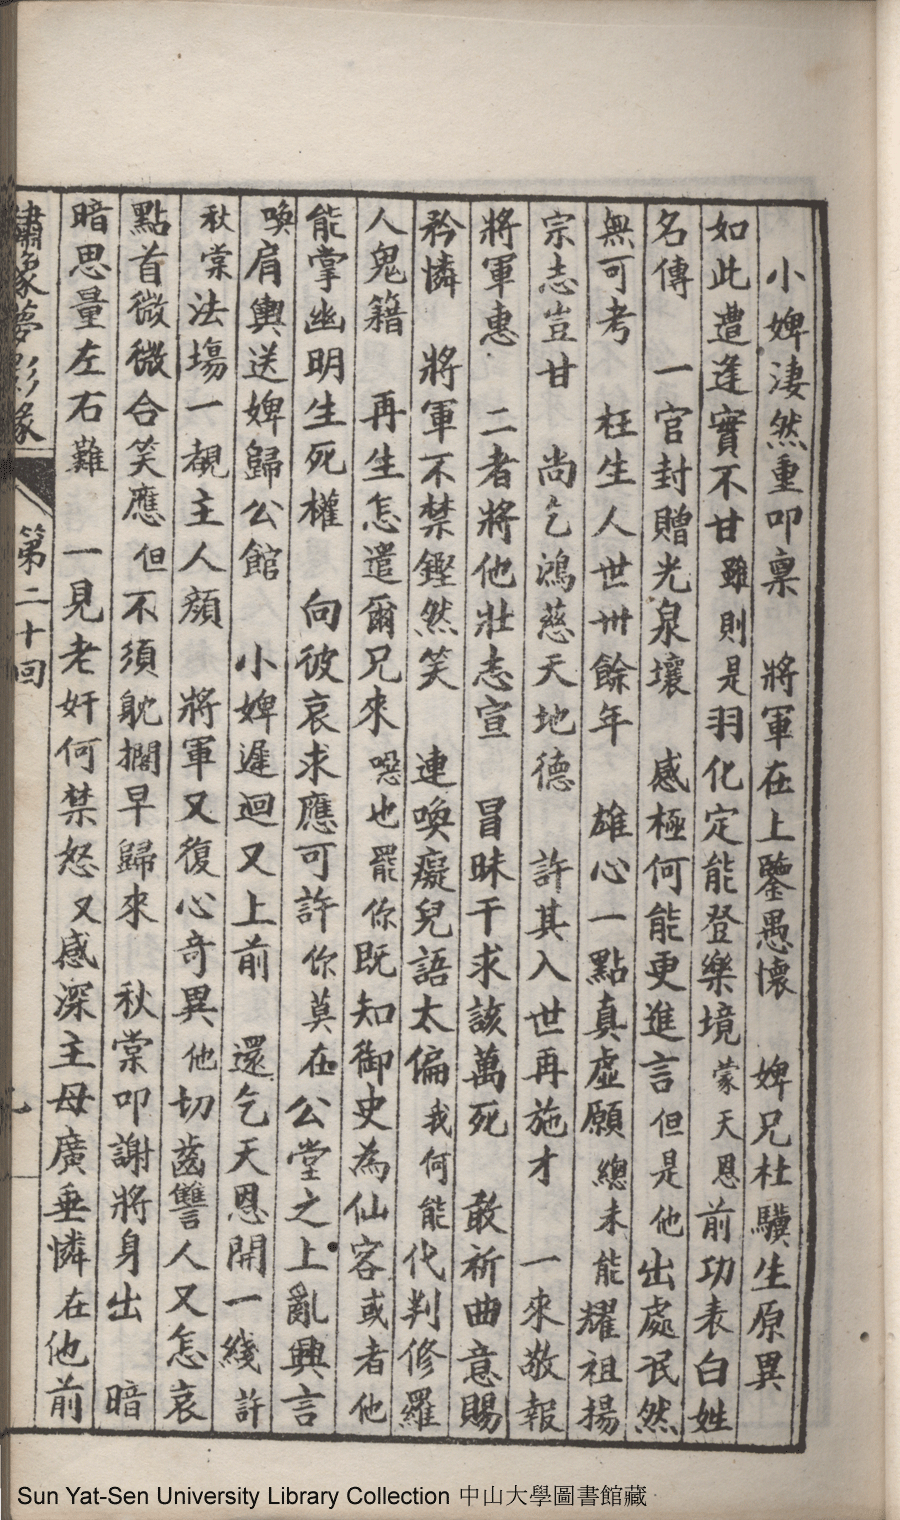 小婢淒然重叩禀　將軍在上鑒愚懷　婢兄杜驥生原異
如此遭逢實不甘雖則是羽化定能登樂境蒙天恩前功表白姓
名傳　一官封贈光泉壤　感極何能更進言但是他出處泯然
無可考　枉生人世卅餘年　雄心一點真虛願總未能耀祖揚
宗志豈甘　尚乞鴻慈天地德　許其入世再施才　一來敬報
將軍惠　二者將他壯志宣　冒昧干求該萬死　敢祈曲意賜
矜憐　將軍不禁鏗然笑　連喚癡兒語太偏我何能代判修羅
人鬼籍　再生怎遣爾兄來噁也罷你既知御史為仙客或者他
能掌幽明生死權　向彼哀求應可許你莫在公堂之上亂興言
喚肩輿送婢歸公館　小婢遲迴又上前　還乞天恩開一綫許
秋棠法塲一覩主人顏　將軍又復心奇異他切齒讐人又怎哀
點首微微合笑應但不須躭擱早歸來　秋棠叩謝將身出　暗
暗思量左右難　一見老奸何禁怒又感深主母廣垂憐在他前
繡像夢影緣　第二十回
Sun Yat-Sen University Library Collection 中山大學圖書館藏